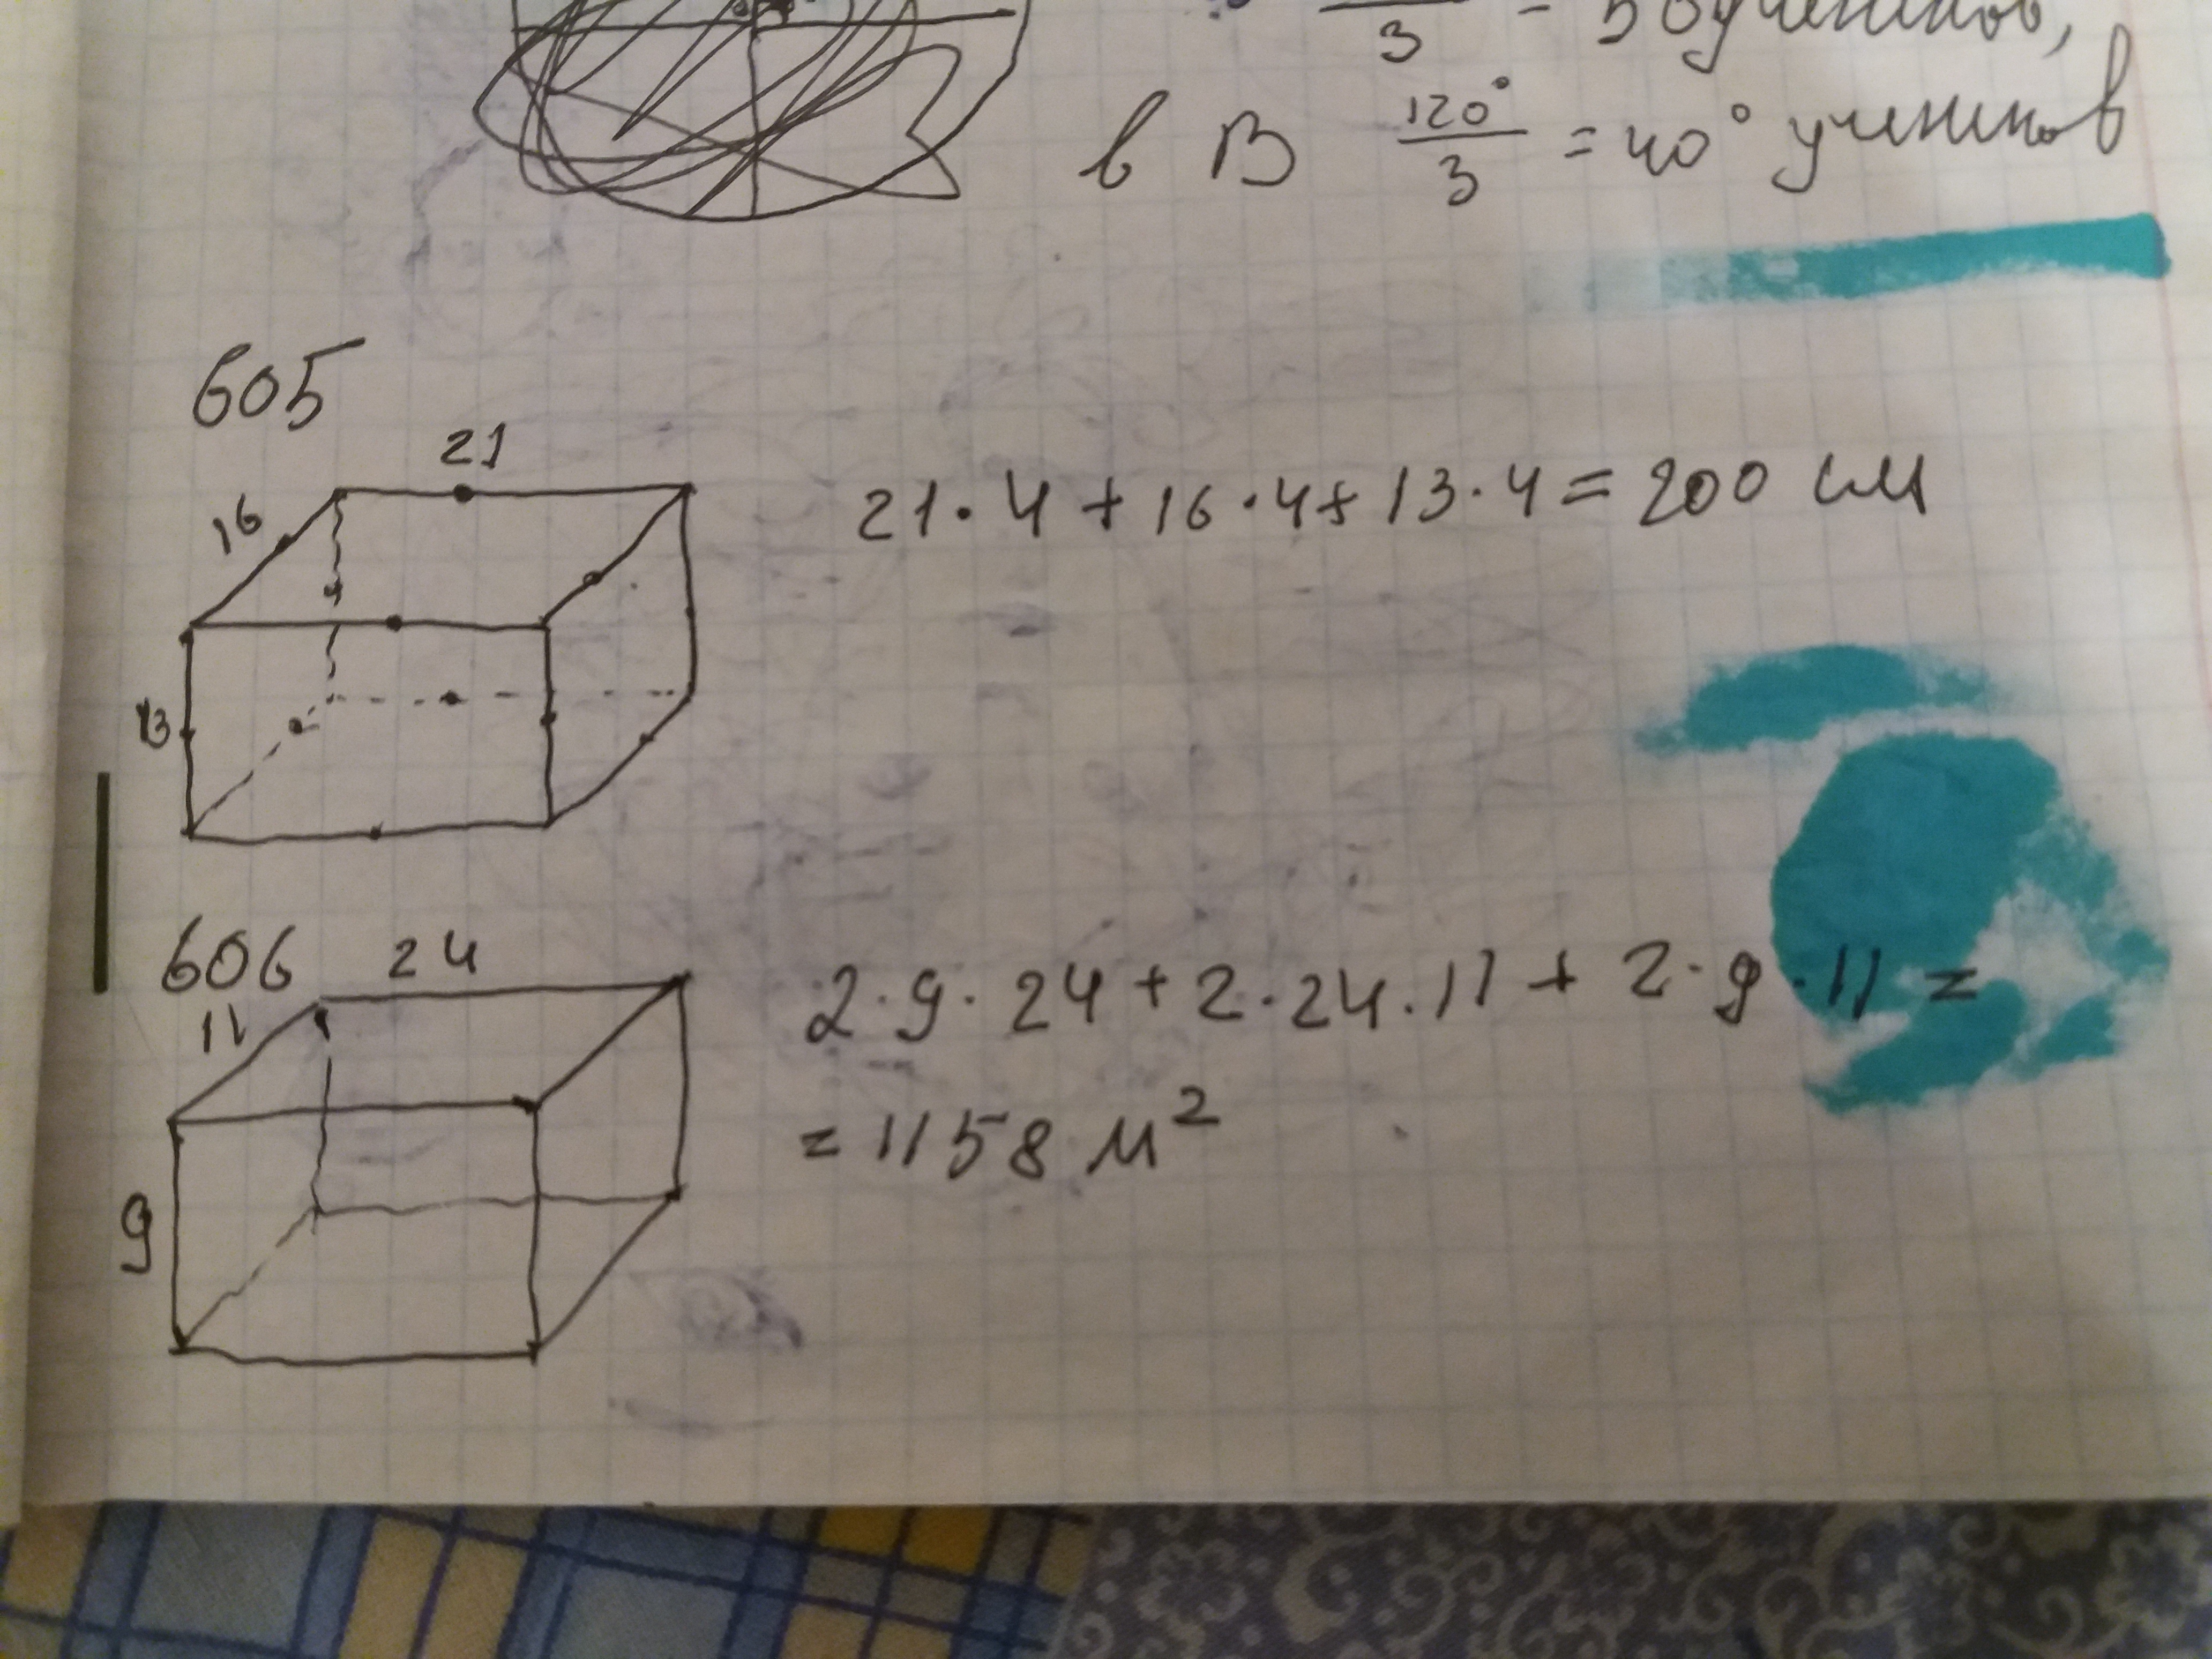 3 = 50 учеников,
в В 120° / 3 = 40° учеников
605
21
16
13
21 · 4 + 16 · 4 + 13 · 4 = 200 см
606
24
11
9
2 · 9 · 24 + 2 · 24 · 11 + 2 · 9 · 11 =
= 1158 м²